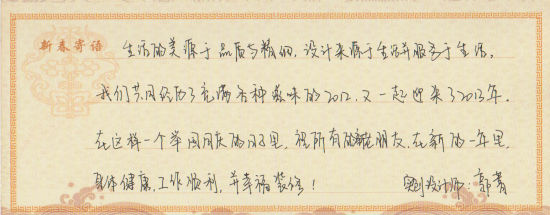 新春寄语
生活的美源于品质与精细,设计来源于生活并服务于生活。
我们共同经历了充满各种趣味的2012,又一起迎来了2013年。
在这样一个举国同庆的日子里,祝所有的新老朋友,在新的一年里,
身体健康,工作顺利,并幸福装修!  设计师:郭菁